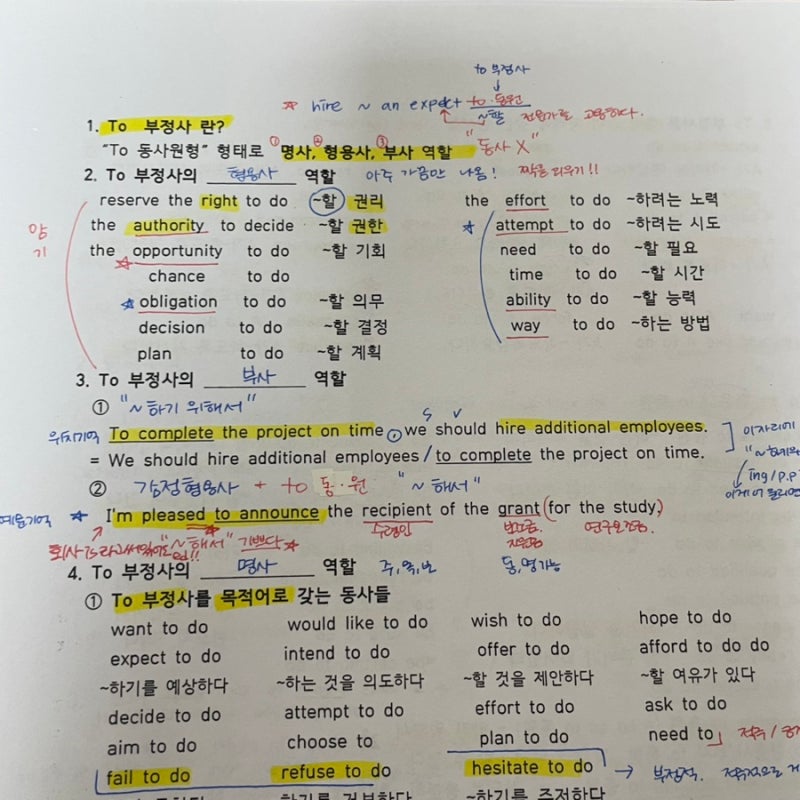 to 부정사
☆ hire ~ an expert to·동원
~할 전문가를 고용하다.
1. To 부정사 란?
"To 동사원형" 형태로 ① ② ③ 명사, 형용사, 부사 역할 "동사 X"
2. To 부정사의 형용사 역할 아주 가끔만 나옴! 짝을 외우기!!
암기
reserve the right to do ~할 권리
the effort to do ~하려는 노력
the authority to decide ~할 권한
☆ attempt to do ~하려는 시도
the opportunity to do ~할 기회
need to do ~할 필요
☆ chance to do
time to do ~할 시간
☆ obligation to do ~할 의무
ability to do ~할 능력
decision to do ~할 결정
way to do ~하는 방법
plan to do ~할 계획
3. To 부정사의 부사 역할
① "~하기 위해서"
S V
위치기억 To complete the project on time, we should hire additional employees. 이자리에
= We should hire additional employees / to complete the project on time. "~하기위
ing/p.p
② 감정형용사 + to 동·원 "~해서"
☆ I'm pleased to announce the recipient of the grant (for the study.)
"~해서" 기쁘다 ☆ 수령인 보조금, 지원금
4. To 부정사의 명사 역할 주, 목, 보 동, 명가능
① To 부정사를 목적어로 갖는 동사들
want to do would like to do wish to do hope to do
expect to do intend to do offer to do afford to do do
~하기를 예상하다 ~하는 것을 의도하다 ~할 것을 제안하다 ~할 여유가 있다
decide to do attempt to do effort to do ask to do
aim to do choose to plan to do need to
fail to do refuse to do hesitate to do → 부정적.
하기를 거부하다 ~하기를 주저하다